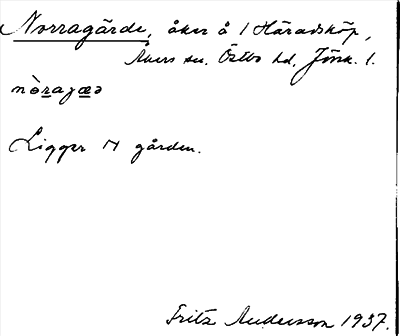 Norragärde, åker å 1 Häradsköp,
Åkers sn. Östbo hd, Jönk. l.
nòrajæə
Ligger N gården.
Fritz Andersson 1937.